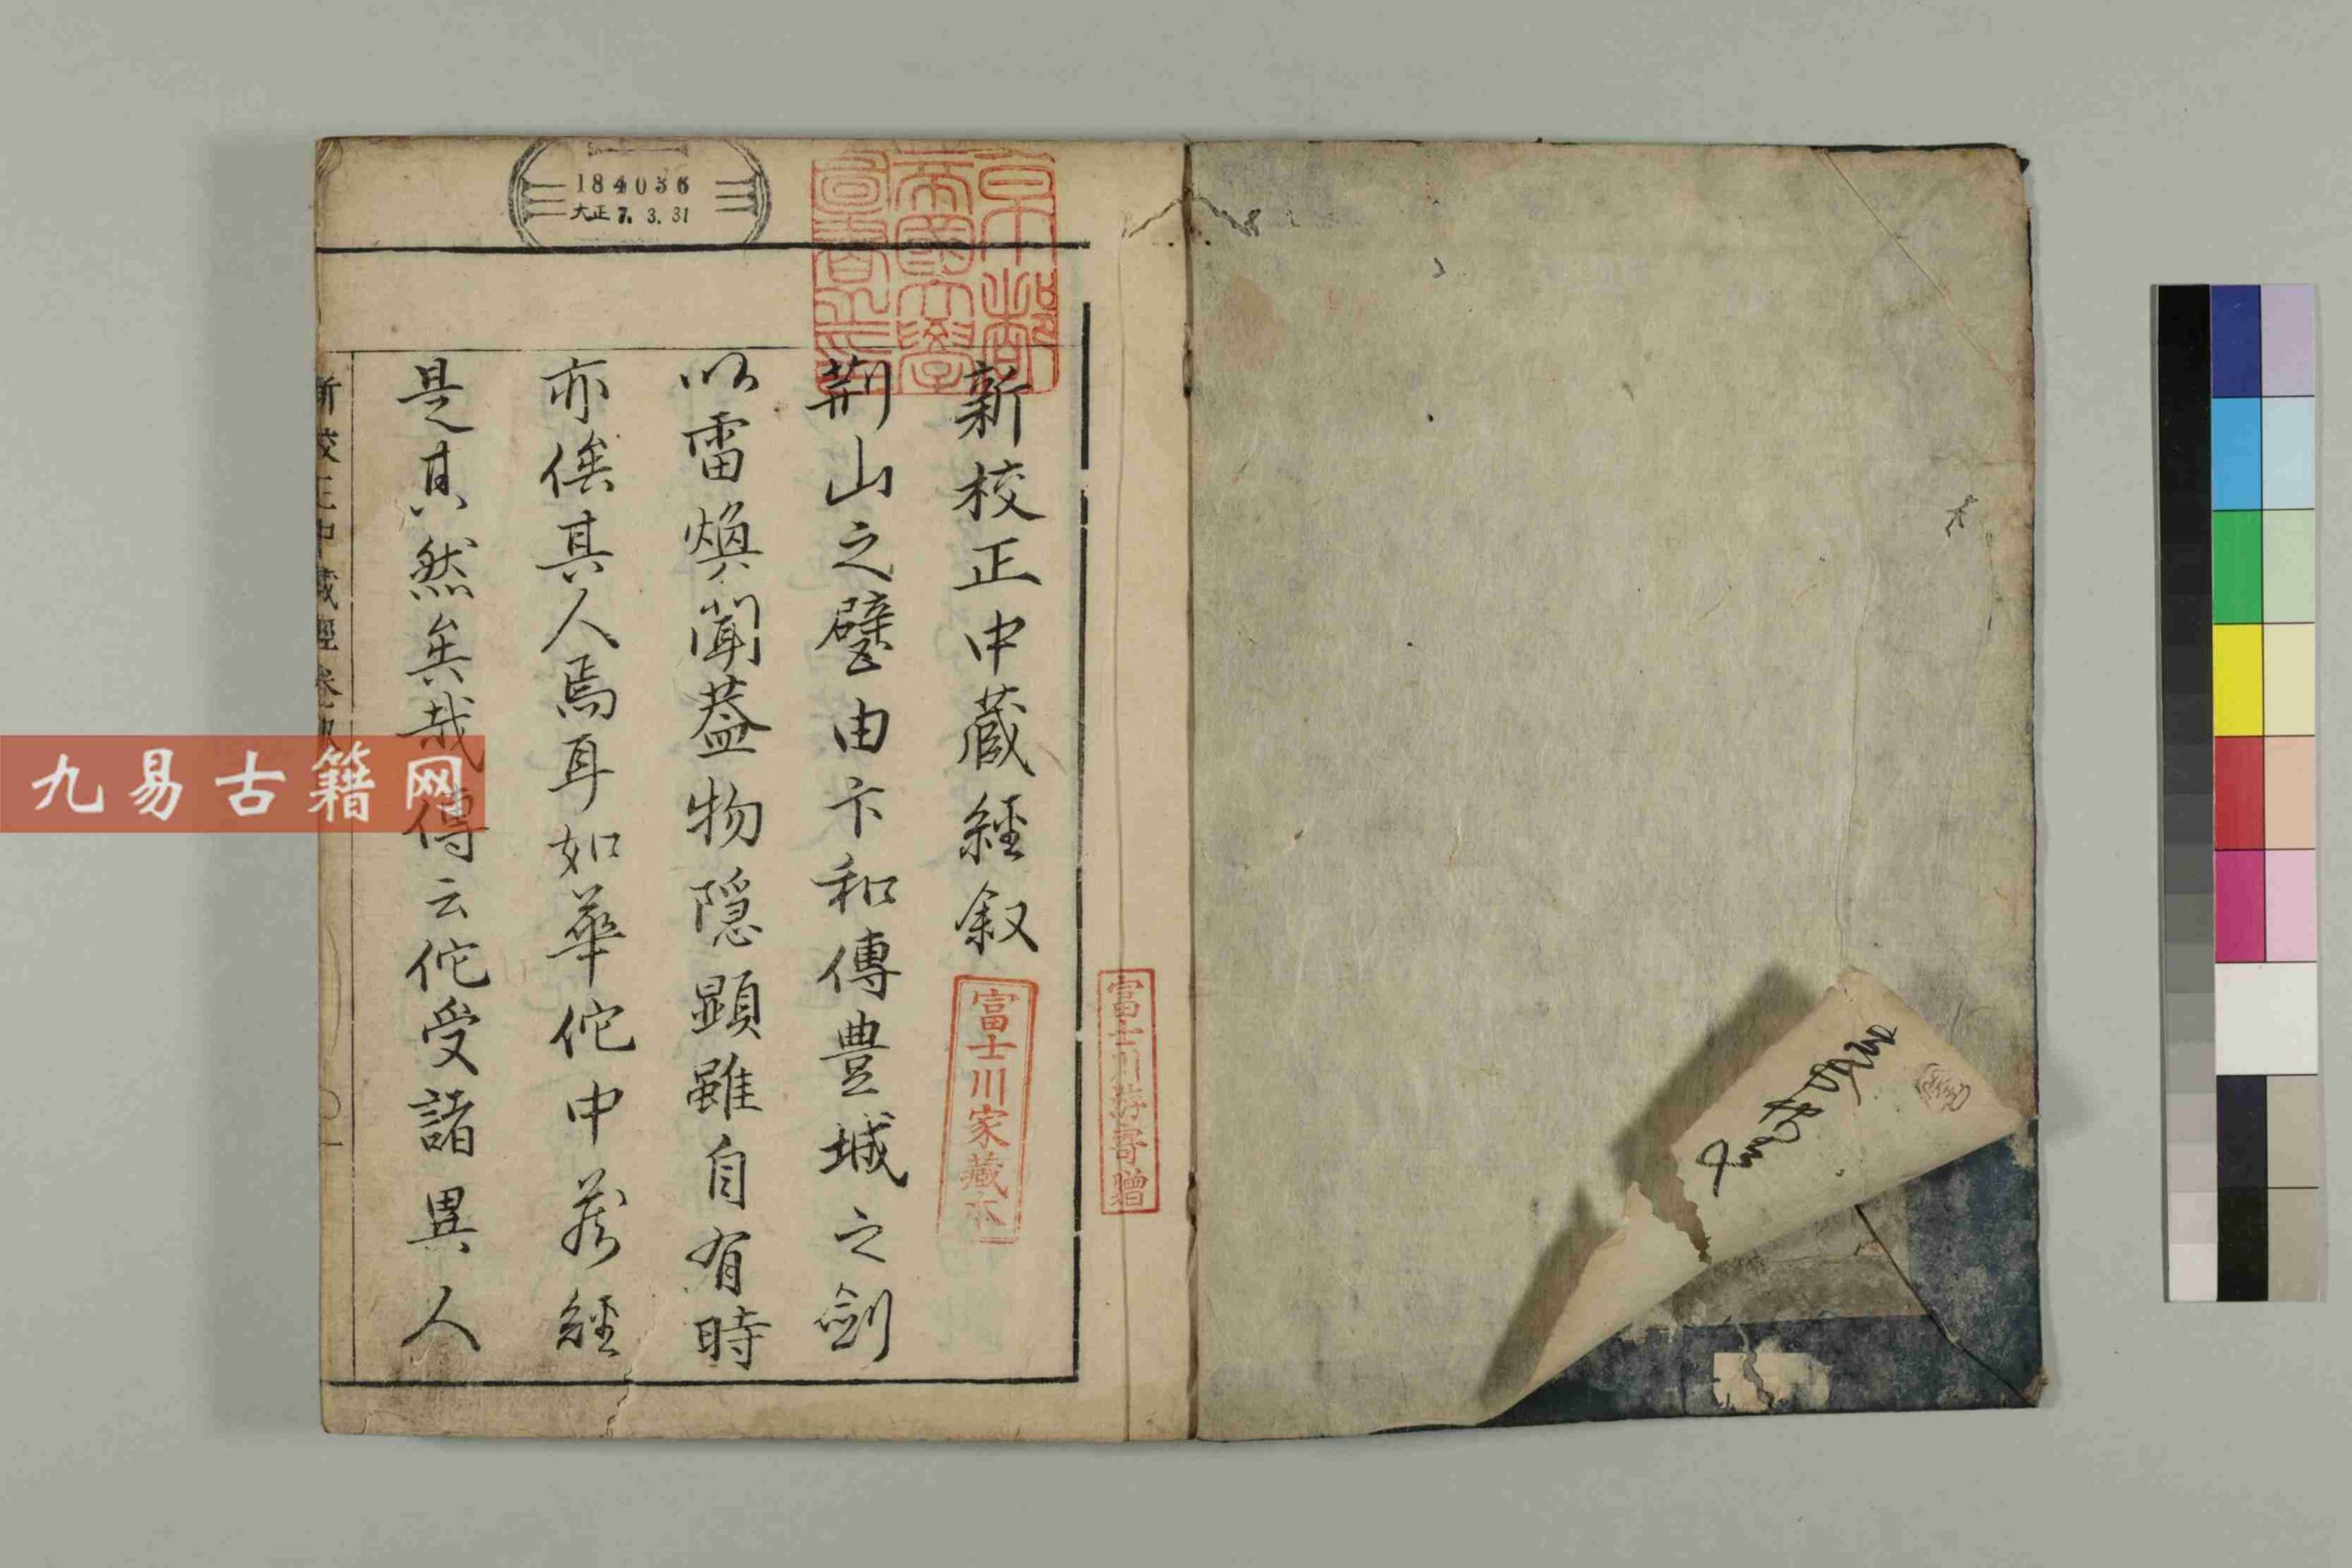 新校正中蔵經叙
荆山之璧由卞和傳豊城之劍
以雷煥聞蓋物隠顕雖自有時
亦俟其人焉耳如華佗中蔵經
是其然矣哉傳云佗受諸異人
新校正中蔵經卷叙
184036
大正7.3.31
京都
帝國大學
圖書之印
富士川家藏本
富士川游寄贈
九易古籍网